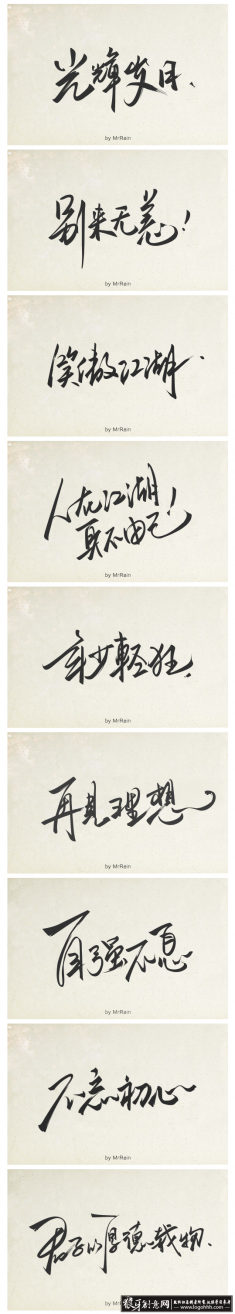 光辉岁月、
by MrRain
别来无恙！
by MrRain
笑傲江湖、
by MrRain
人在江湖
身不由己！
by MrRain
年少輕狂、
by MrRain
再见理想
by MrRain
自强不息
by MrRain
不忘初心
by MrRain
君子以厚德载物、
创意网
www.logohhh.com